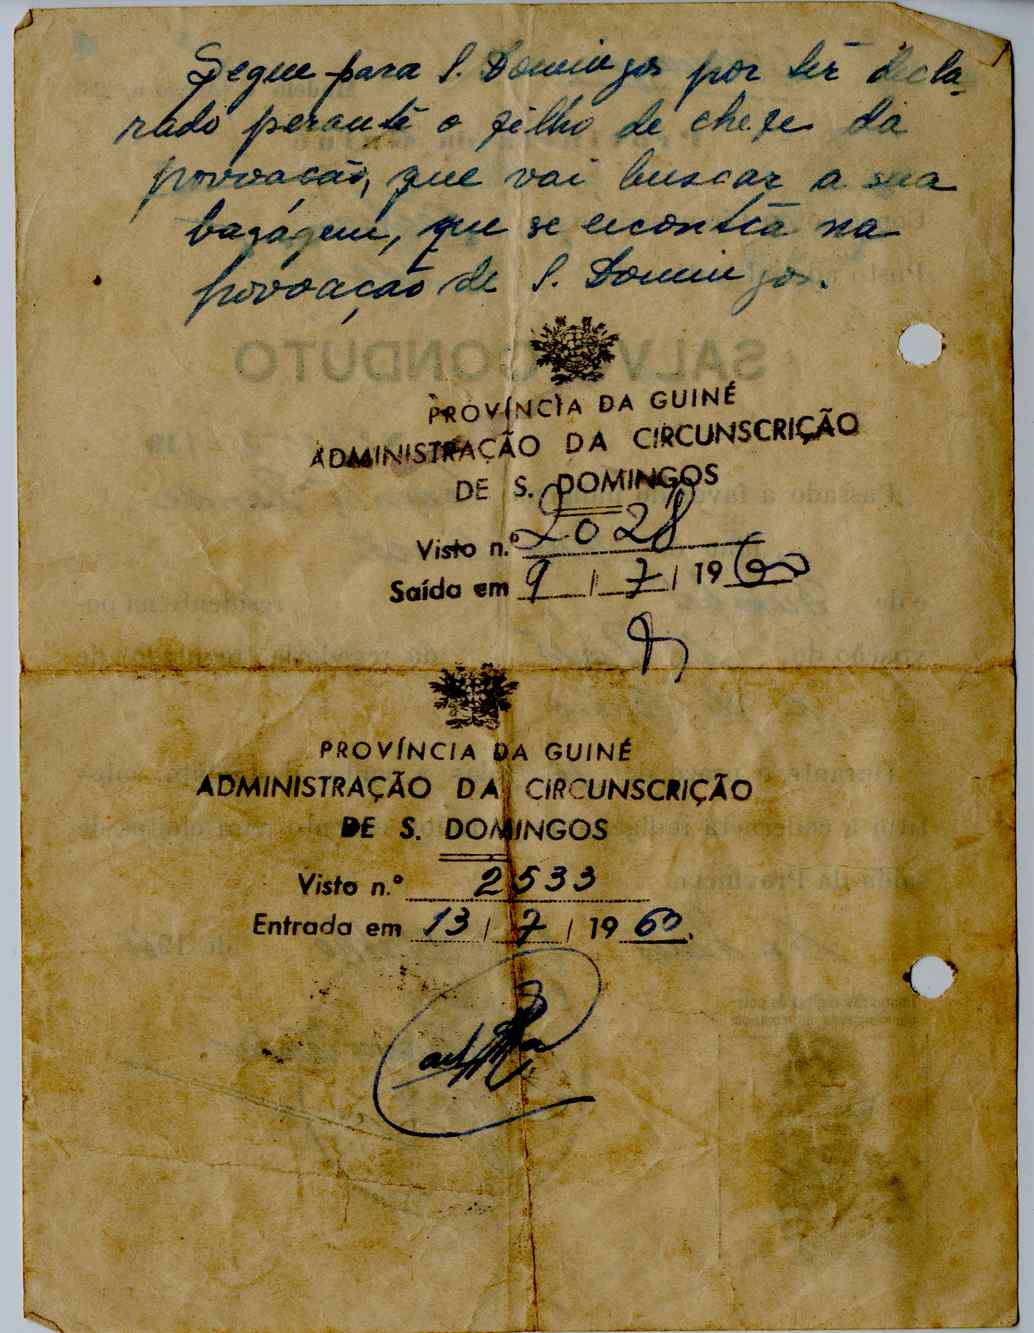 Segue para S. Domingos por ter decla-
rado perante o filho de chefe da
povoação, que vai buscar a sua
bagágem, que se encontra na
povoação de S. Domingos.
PROVÍNCIA DA GUINÉ
ADMINISTRAÇÃO DA CIRCUNSCRIÇÃO
DE S. DOMINGOS
Visto n.º 2028
Saída em 9 / 7 / 1960
PROVÍNCIA DA GUINÉ
ADMINISTRAÇÃO DA CIRCUNSCRIÇÃO
DE S. DOMINGOS
Visto n.º 2533
Entrada em 13 / 7 / 1960.